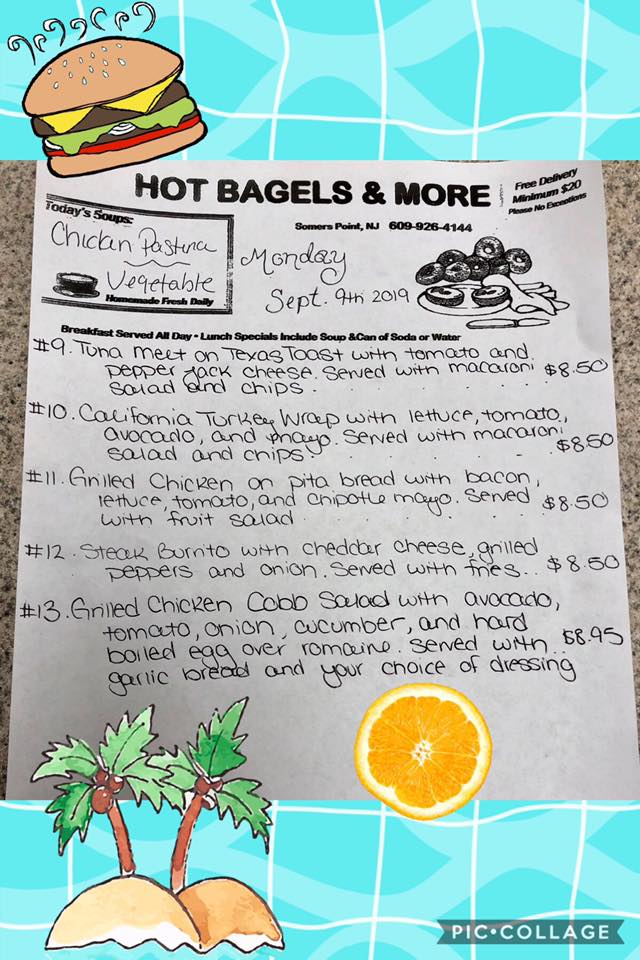 HOT BAGELS & MORE
Free Delivery
Minimum $20
Please No Exceptions
Somers Point, NJ 609-926-4144
Today's Soups:
Chicken Pastina
Vegetable
Homemade Fresh Daily
Monday
Sept. 9th 2019
Breakfast Served All Day • Lunch Specials Include Soup & Can of Soda or Water
#9. Tuna Melt on Texas Toast with tomato and
pepper jack cheese. Served with macaroni $8.50
salad and chips.
#10. California Turkey Wrap with lettuce, tomato,
avocado, and mayo. Served with macaroni
salad and chips. $8.50
#11. Grilled Chicken on pita bread with bacon,
lettuce, tomato, and chipotle mayo. Served $8.50
with fruit salad
#12. Steak Burrito with cheddar cheese, grilled
peppers and onion. Served with fries... $8.50
#13. Grilled Chicken Cobb Salad with avocado,
tomato, onion, cucumber, and hard
boiled egg over romaine. Served with.. $8.95
garlic bread and your choice of dressing
PIC•COLLAGE